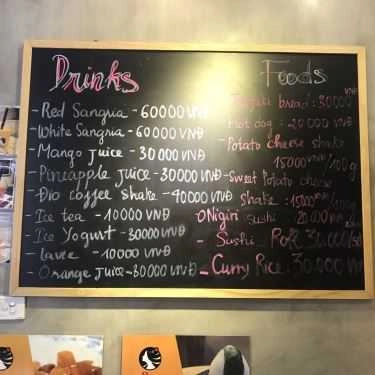 Drinks
- Red Sangria - 60000 VNĐ
- White Sangria - 60000 VNĐ
- Mango juice - 30000 VNĐ
- Pineapple juice - 30000 VNĐ
- Đio coffee shake - 40000 VNĐ
- Ice tea - 10000 VNĐ
- Ice Yogurt - 30000 VNĐ
- Lavie - 10000 VNĐ
- Orange juice - 30000 VNĐ
Foods
bread : 30000 VNĐ
- Hot dog : 20 000 VNĐ
- Potato cheese shake
15000 VNĐ/100g
- Sweet Potato cheese
shake : 15000 VNĐ/100g
- Onigiri sushi : 20.000 VNĐ
- Sushi Roll 30,000
- Curry Rice : 30.000 VNĐ